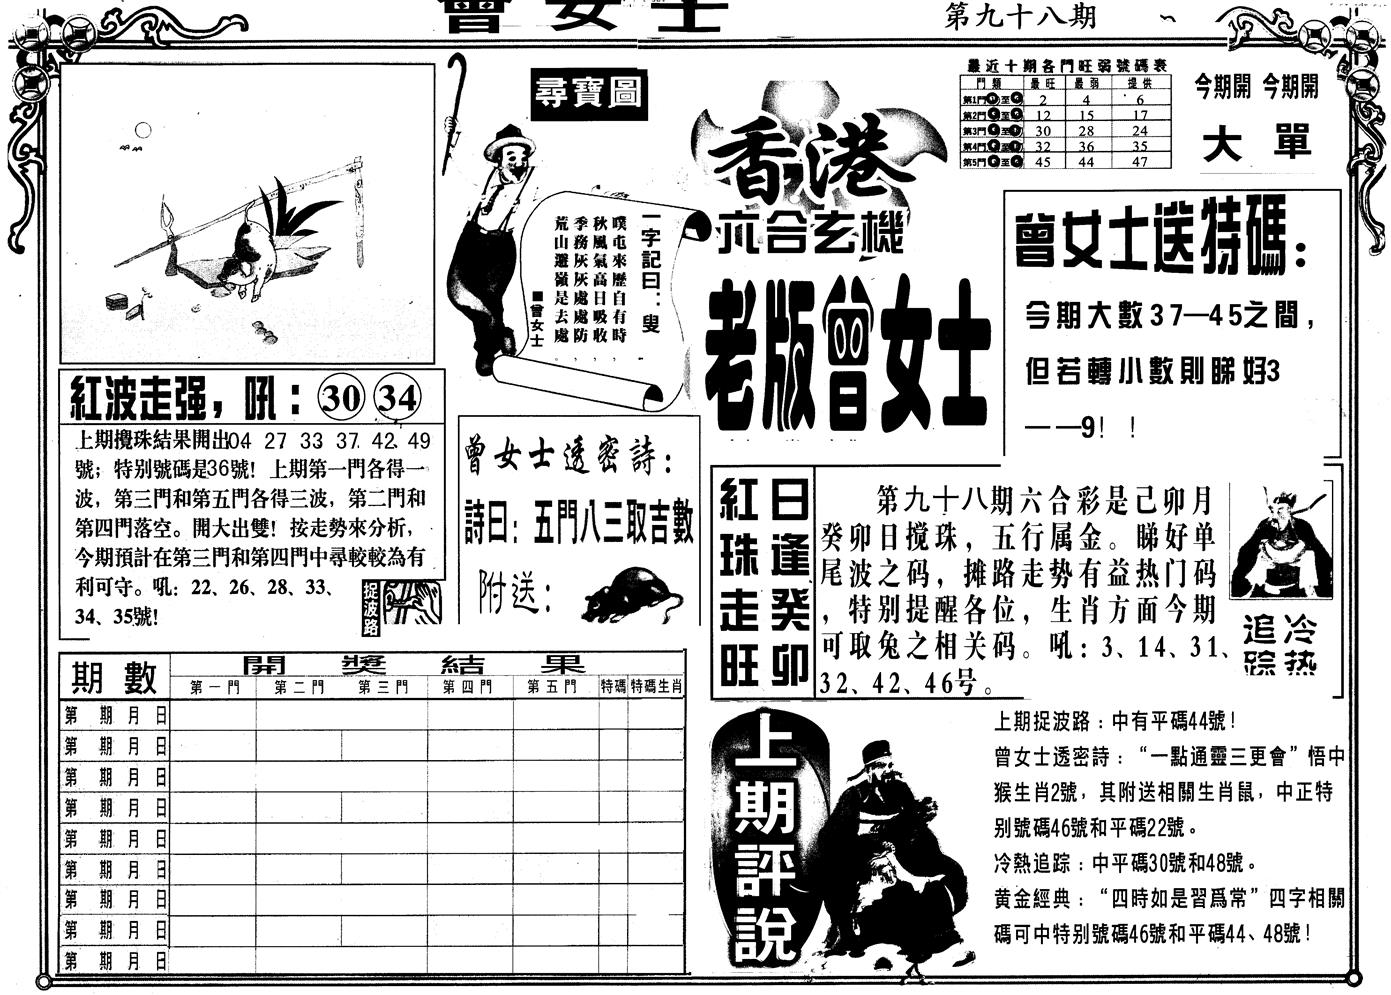 曾女士
第九十八期
尋寶圖
一字記曰：叟
噗屯來歷自有時，
秋風氣高日吸收，
季務灰灰處處防，
荒山遯嶺是去處。
■曾女士
香港
六合玄機
老版曾女士
最近十期各門旺弱號碼表
門類 最旺 最弱 提供
第1門 至 2 4 6
第2門 至 12 15 17
第3門 至 30 28 24
第4門 至 32 36 35
第5門 至 45 44 47
今期開 今期開
大 單
曾女士送特碼：
今期大數37—45之間，
但若轉小數則睇好3
——9！！
紅波走强，吼：30 34
上期攪珠結果開出04 27 33 37 42 49
號；特别號碼是36號！上期第一門各得一
波，第三門和第五門各得三波，第二門和
第四門落空。開大出雙！按走勢來分析，
今期預計在第三門和第四門中尋較較為有
利可守。吼：22、26、28、33、
34、35號！
捉波路
曾女士透密詩：
詩曰：五門八三取吉數
附送：
日逢癸卯
紅珠走旺
第九十八期六合彩是己卯月
癸卯日搅珠，五行属金。睇好单
尾波之码，摊路走势有益热门码
，特别提醒各位，生肖方面今期
可取兔之相关码。吼：3、14、31、
32、42、46号。
冷热
追踪
期數 開獎結果
第一門 第二門 第三門 第四門 第五門 特碼 特碼生肖
第 期 月 日
第 期 月 日
第 期 月 日
第 期 月 日
第 期 月 日
第 期 月 日
第 期 月 日
第 期 月 日
第 期 月 日
上期評說
上期捉波路：中有平碼44號！
曾女士透密詩：“一點通靈三更會”悟中
猴生肖2號，其附送相關生肖鼠，中正特
别號碼46號和平碼22號。
冷熱追踪：中平碼30號和48號。
黄金經典：“四時如是習爲常”四字相關
碼可中特别號碼46號和平碼44、48號！